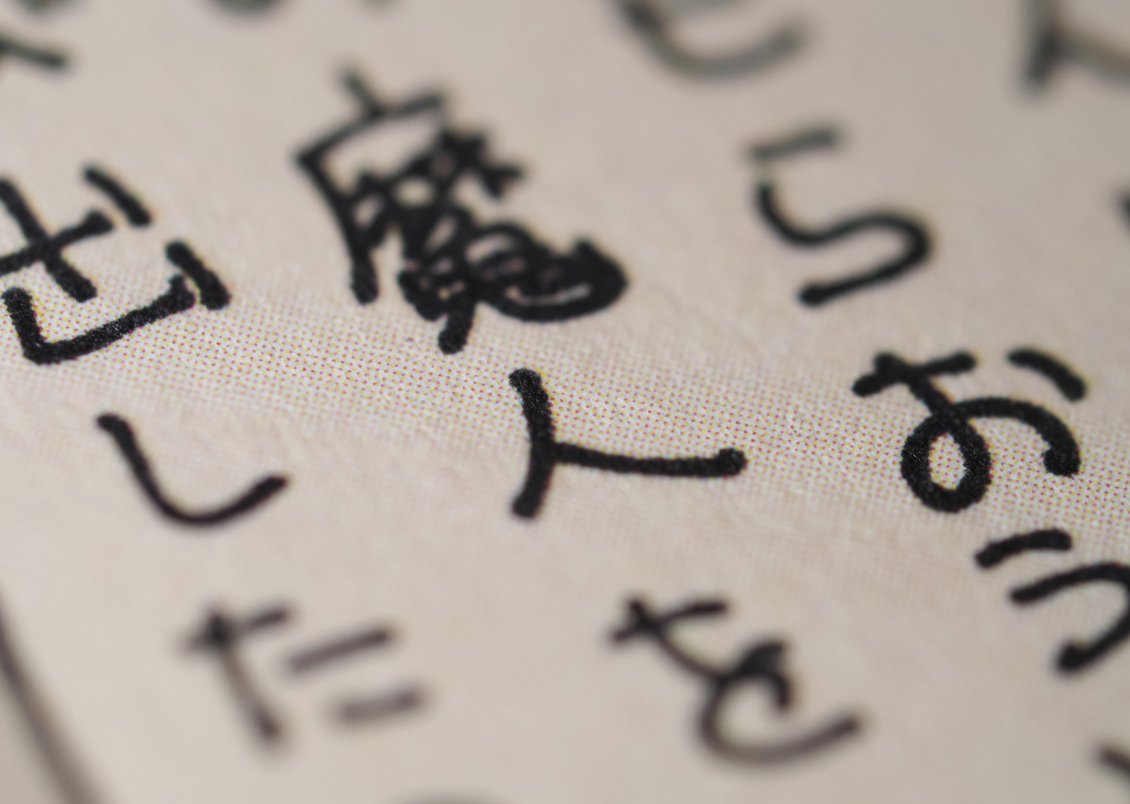 らおう
魔人を
出した